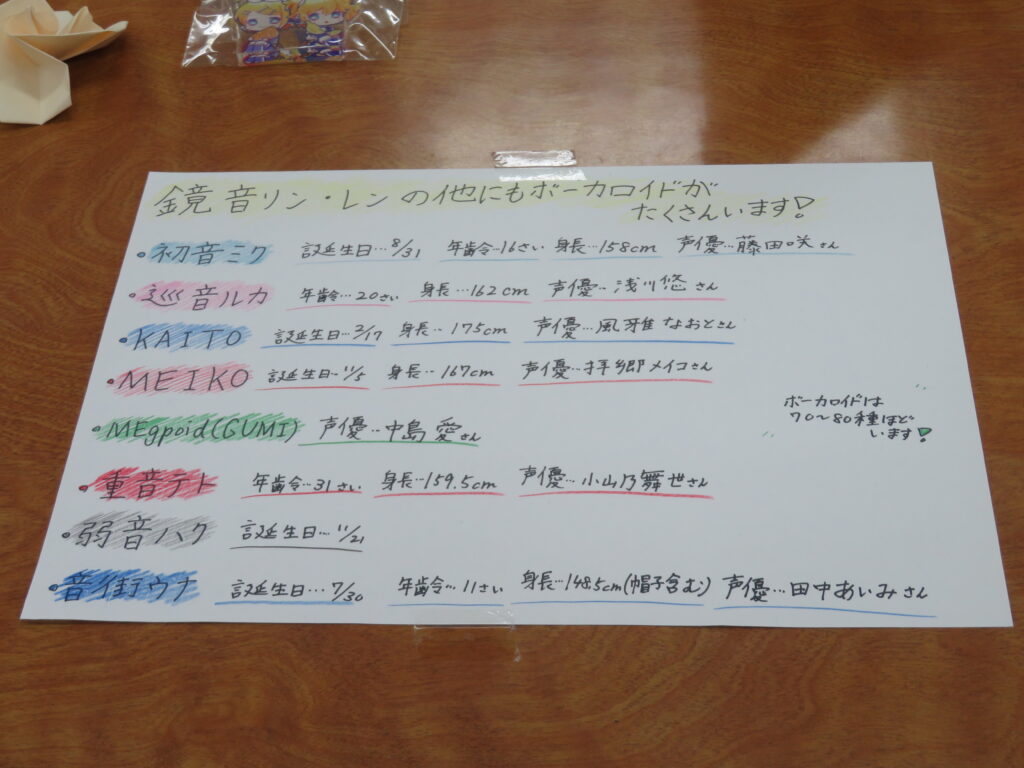 鏡音リン・レンの他にもボーカロイドが
たくさんいます!
・初音ミク 誕生日…8/31 年齢…16さい 身長…158cm 声優…藤田咲さん
・巡音ルカ 年齢…20さい 身長…162cm 声優…浅川悠さん
・KAITO 誕生日…2/17 身長…175cm 声優…風雅なおとさん
・MEIKO 誕生日…11/5 身長…167cm 声優…拝郷メイコさん
・MEgpoid(GUMI) 声優…中島愛さん
・重音テト 年齢…31さい 身長…159.5cm 声優…小山乃舞世さん
・弱音ハク 誕生日…11/21
・音街ウナ 誕生日…7/30 年齢…11さい 身長…148.5cm(帽子含む) 声優…田中あいみさん
ボーカロイドは
70~80種ほど
います!